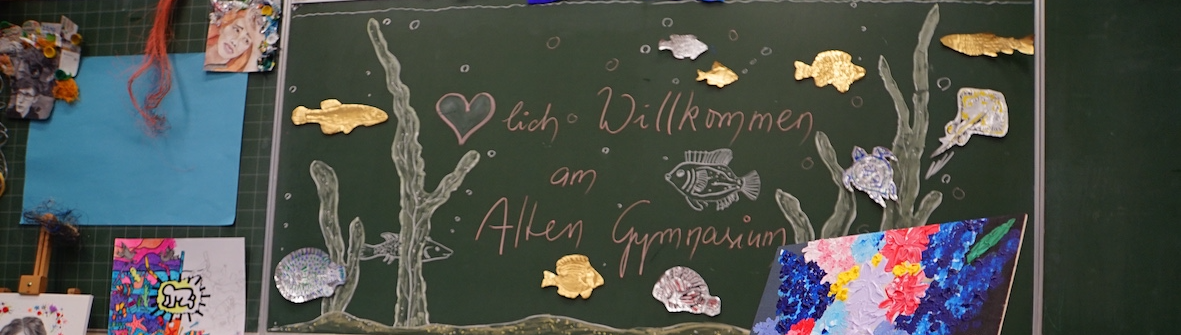 ♥lich Willkommen
am
Alten Gymnasium